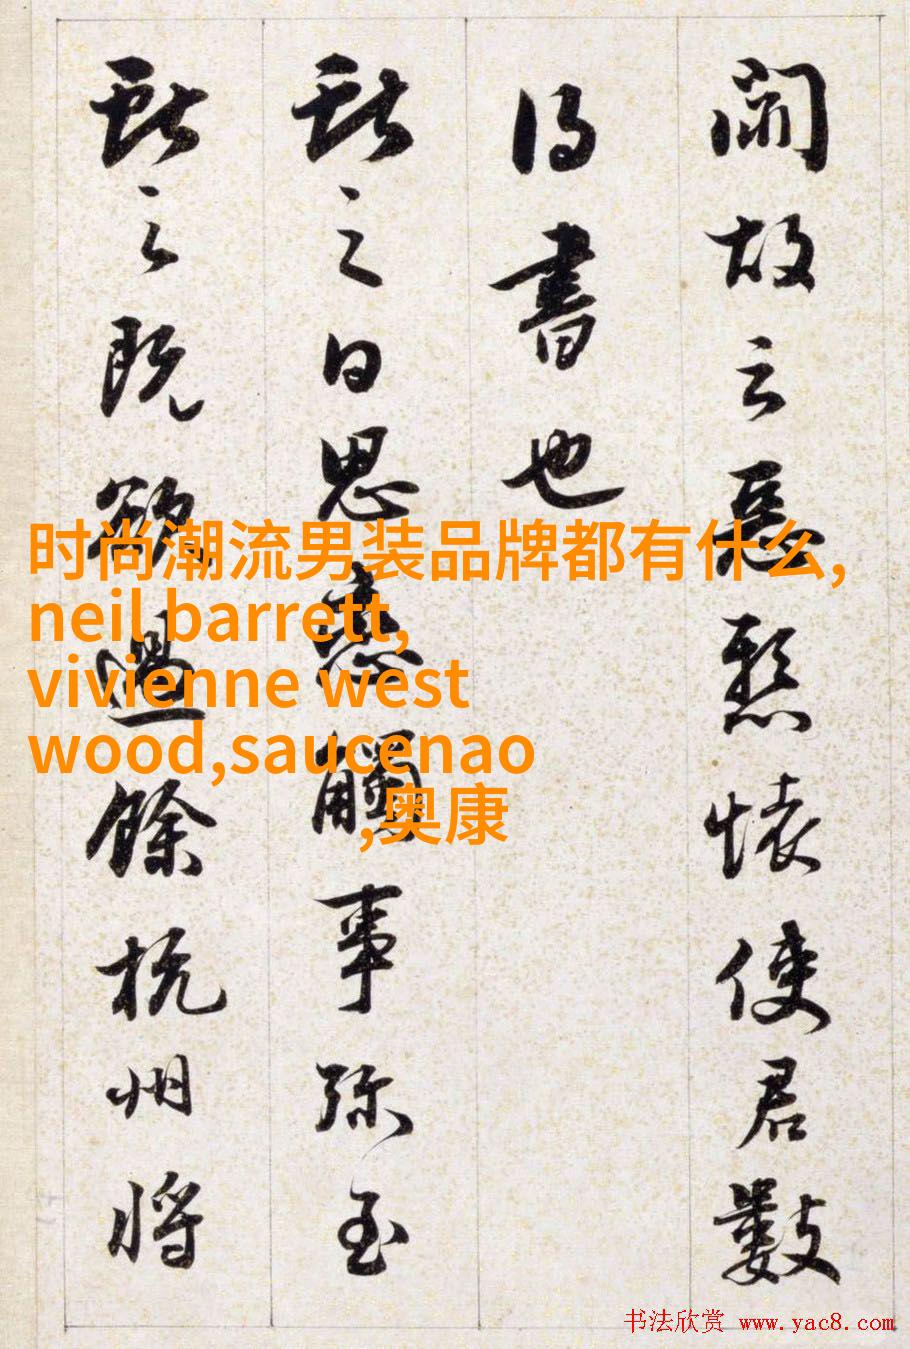 故云惡懸懷使君數
得書也
獻之日思戀觸事弥至
獻之既欲過餘杭州將
时尚潮流男装品牌都有什么,
neil barrett,
vivienne west
wood,saucenao
,奥康
书法欣赏 www.yac8.com